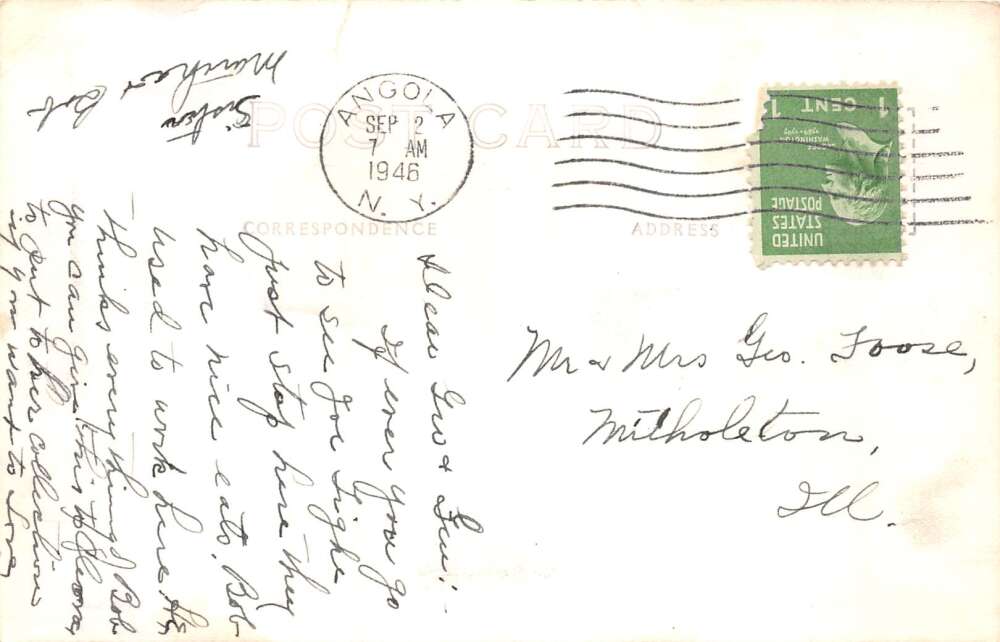 POST CARD
CORRESPONDENCE
ADDRESS
ANGOLA
SEP 2
7 AM
1946
N. Y.
1 CENT 1
WASHINGTON
UNITED
STATES
POSTAGE
Mr & Mrs Geo. Foose,
Ill.
Dear Geo &
If ever you go
to see Joe
just stop here they
have nice eats. Bob
used to work here He
thinks everything of Bob
you can give this to
to put to her collection
if you want to Love,
Sister
Martha &
Bob